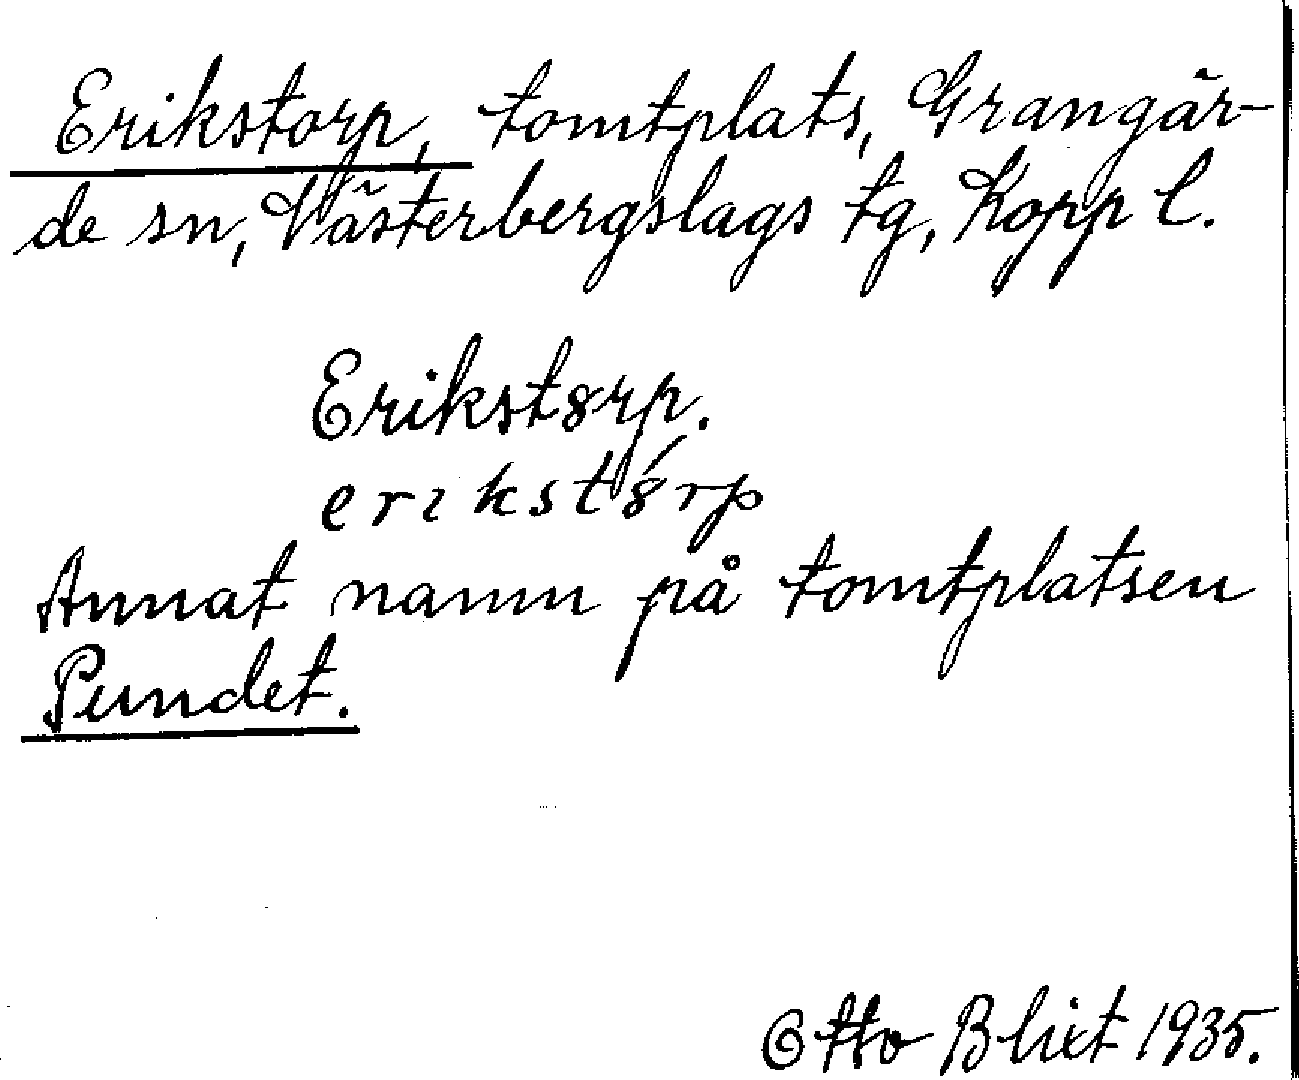 Erikstorp, tomtplats, Grangär-
de sn, Västerbergslags tg, Kopp l.
Erikst8rp.
erikst8́rp
Annat namn på tomtplatsen
Pundet.
Otto Blixt 1935.